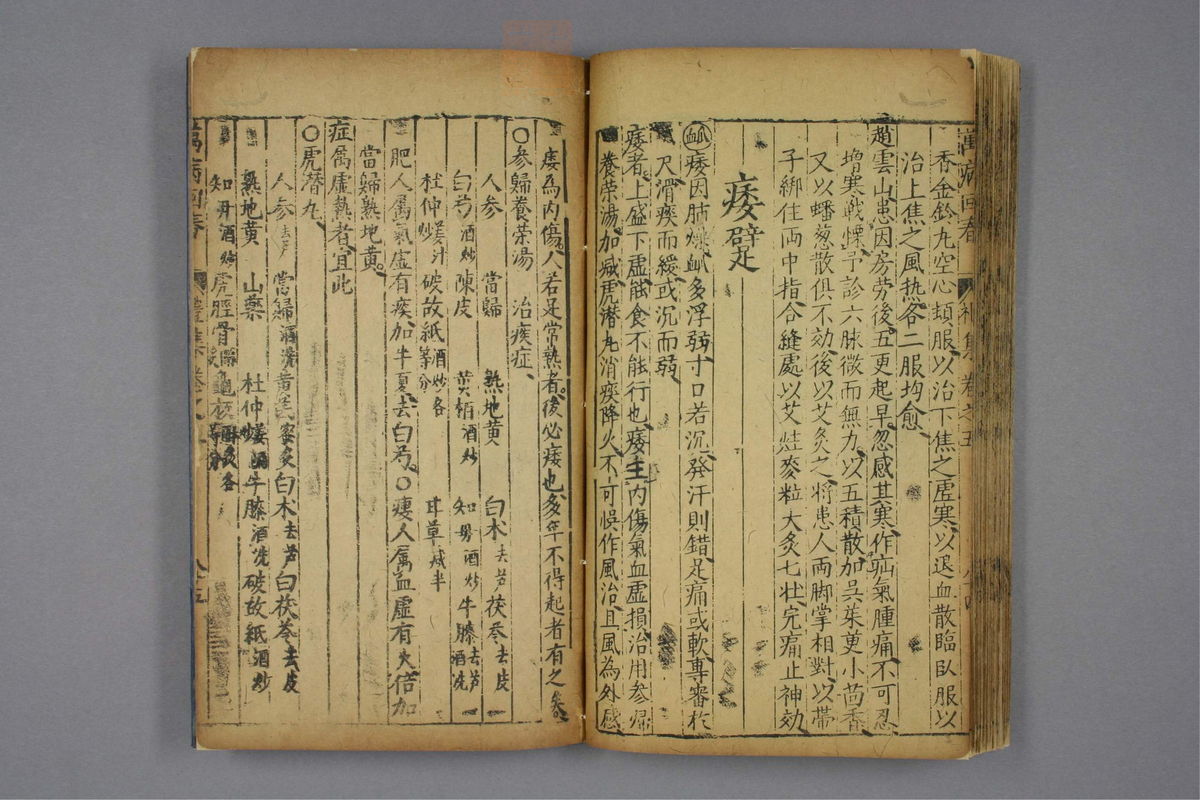 萬病回春 卷之五
香金鈴丸空心頻服以治下焦之虛寒以退血散臨臥服以
治上焦之風热各二服均愈
趙雲山患因房劳後五更起早忽感其寒作疝氣腫痛不可忍
增寒戰慄予診六脉微而無力以五積散加吳茱萸小茴香
又以蟠葱散俱不効後以艾灸之将患人両脚掌相對以帶
子綁住両中指合縫處以艾炷麥粒大灸七壮完痛止神効
痿躄
脉痿因肺燥脉多浮弱寸口若沉發汗則錯足痛或軟專審於
尺滑痰而緩或沉而弱
痿者上盛下虛能食不能行也痿主内傷氣血虛損治用参歸
養荣湯加减虎潜丸消痰降火不可悞作風治且風為外感
痿為内傷人若足常熱者後必痿也多年不得起者有之矣
○参歸養荣湯 治痿症
人参 當歸 熟地黄 白术去芦 茯苓去皮
白芍酒炒 陳皮 黄栢酒炒 知母酒炒 牛膝去芦酒洗
杜仲 破故紙酒炒各等分 甘草减半
肥人属氣虛有痰加半夏去白芍○痩人属血虛有火倍加
當歸熟地黄
○虎潜丸
症属虛熱者宜此
人参去芦 當歸酒洗 黄芪蜜炙 白术去芦 白茯苓去皮
熟地黄 山藥 杜仲 牛膝酒洗 破故紙酒炒
知母酒炒 虎脛骨 龜板酥炙各等分
萬病回春